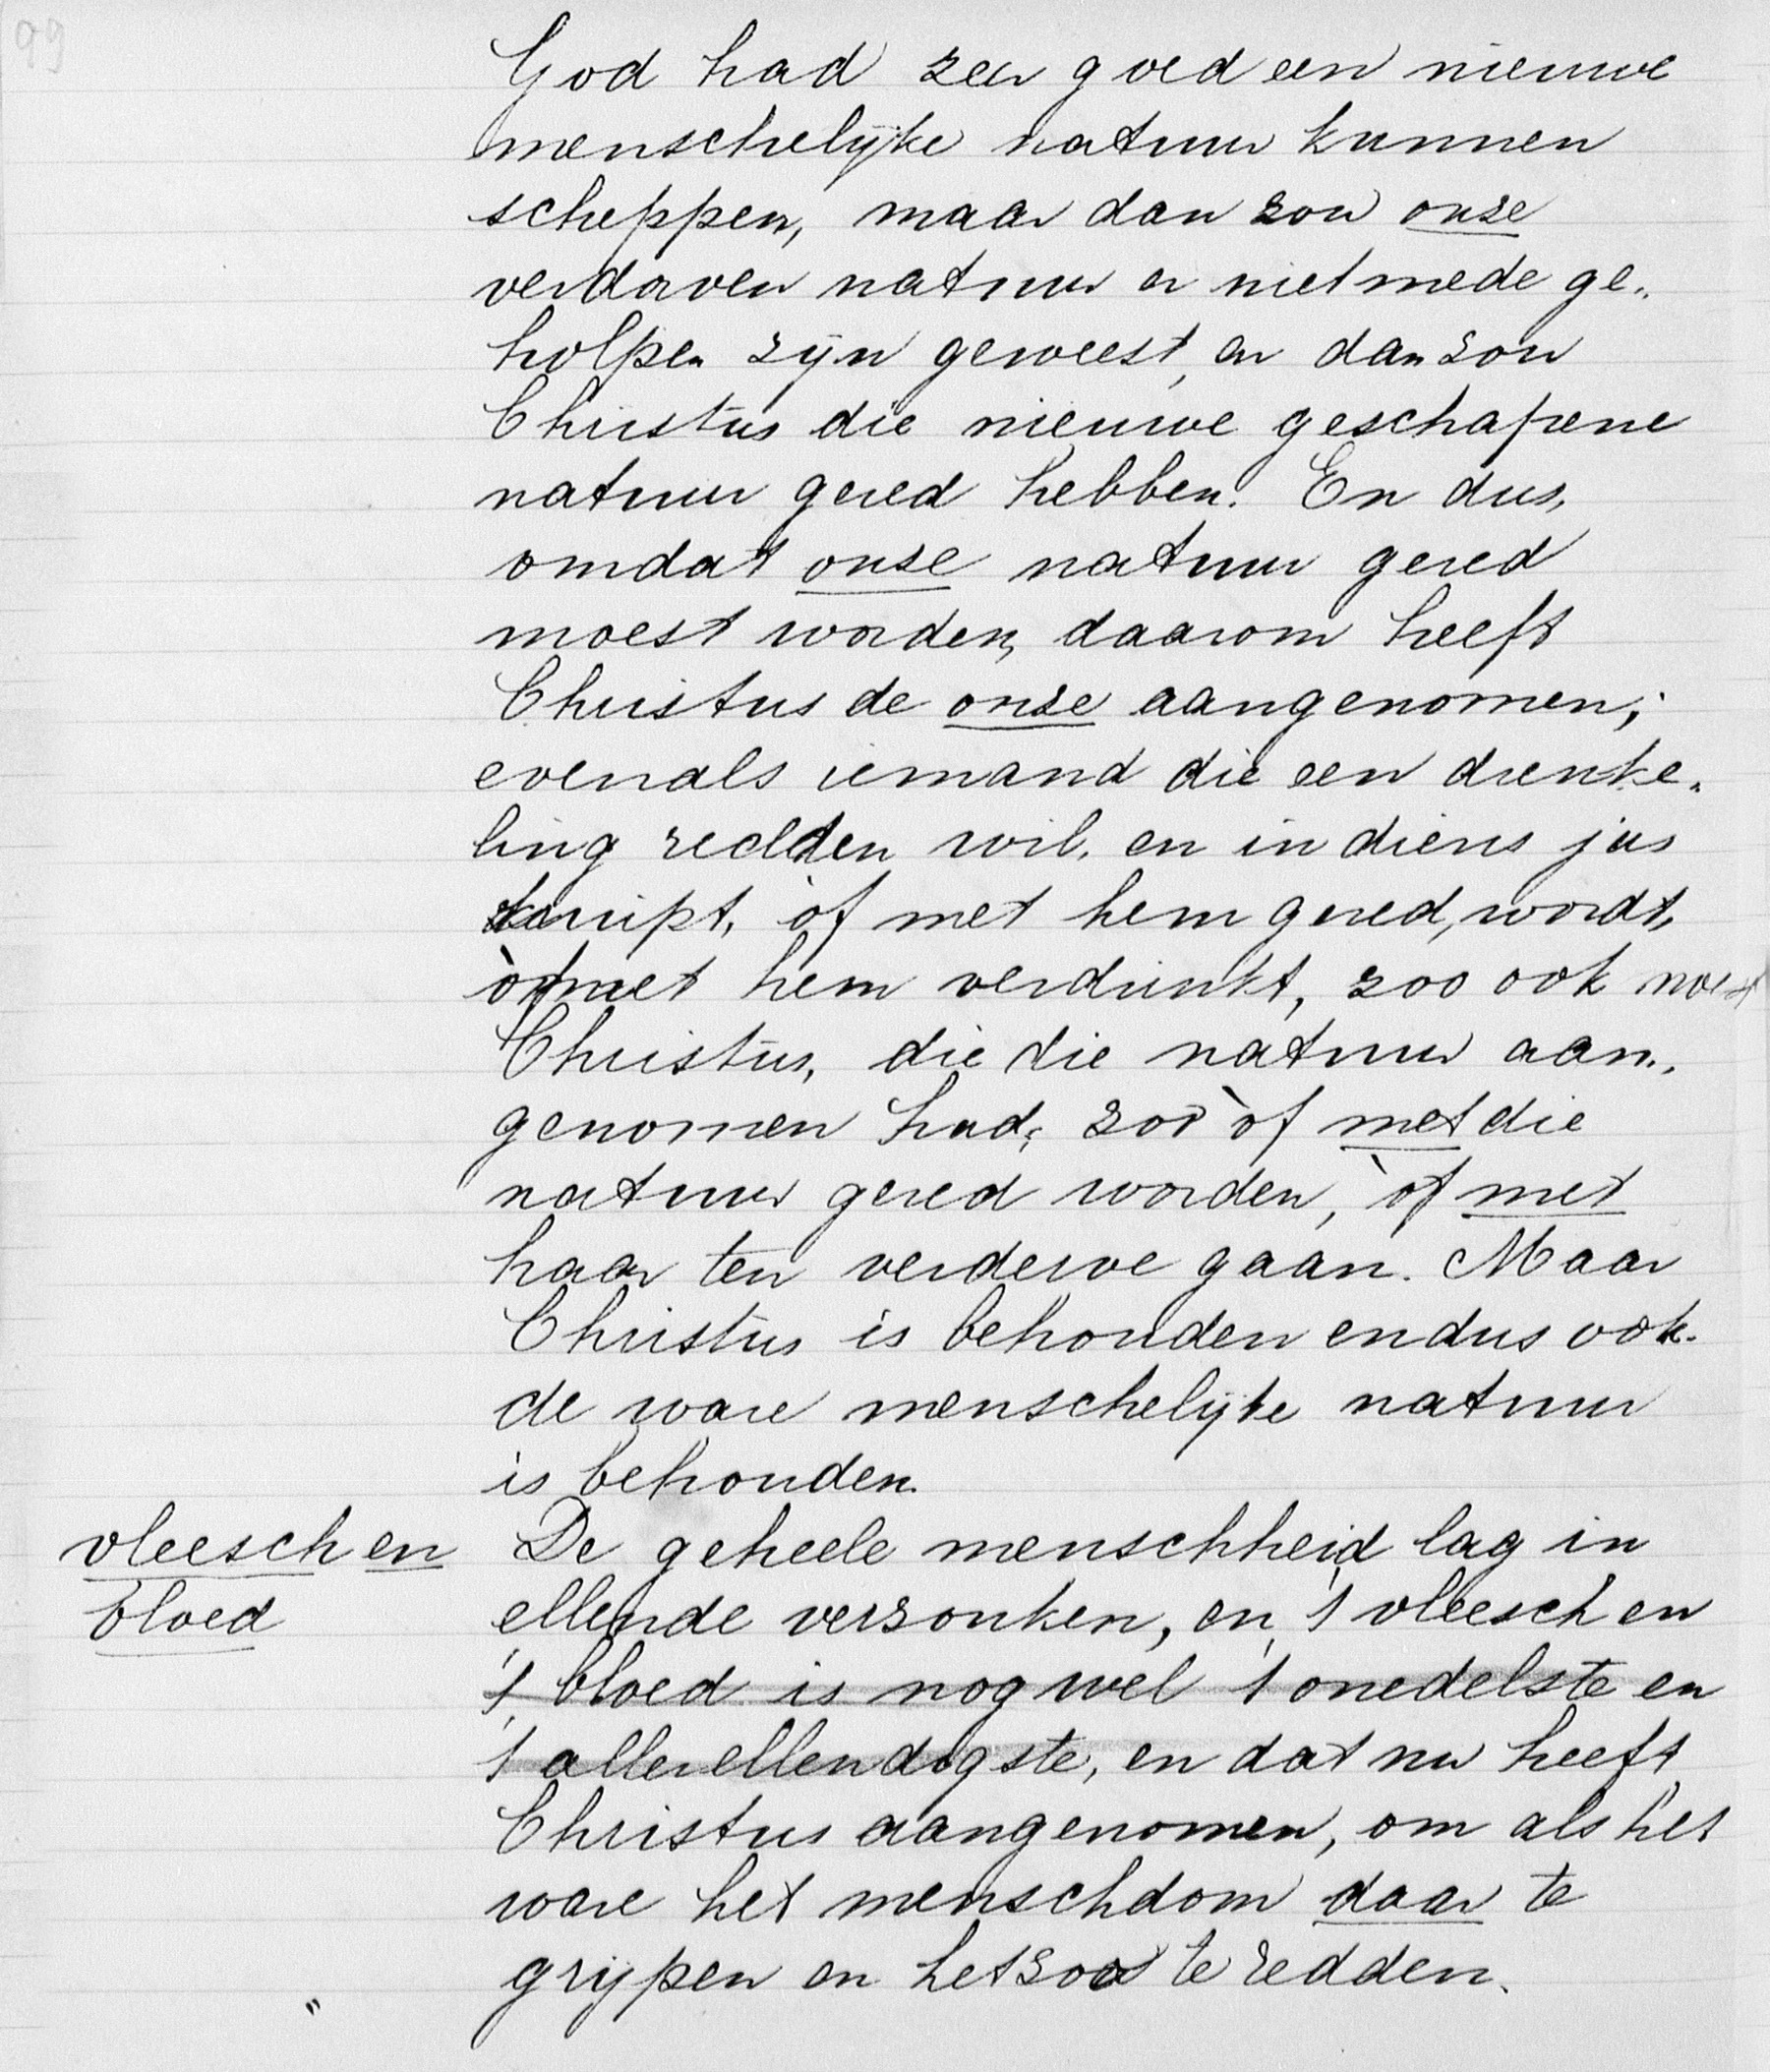 99
God had zeer goed een nieuwe
menschelijke natuur kunnen
scheppen, maar dan zou onze
verdorven natuur er niet mede ge„
holpen zijn geweest, en dan zou
Christus die nieuwe geschapene
natuur gered hebben. En dus,
omdat onze natuur gered
moest worden, daarom heeft
Christus de onze aangenomen;
evenals iemand die een drenke„
ling redden wil, en in diens jas
òf met hem gered, wordt,
òf met hem verdrinkt, zoo ook moest
Christus, die die natuur aan„
genomen had, zoo òf met die
natuur gered worden, òf met
haar ten verderve gaan. Maar
Christus is behouden en dus ook
de ware menschelijke natuur
is behouden.
vleesch en
bloed
De geheele menschheid lag in
ellende verzonken, en 't vleesch en
't bloed is nog wel 't onedelste en
't allerellendigste, en dat nu heeft
Christus aangenomen, om als het
ware het menschdom daar te
grijpen en het zoo te redden.
"